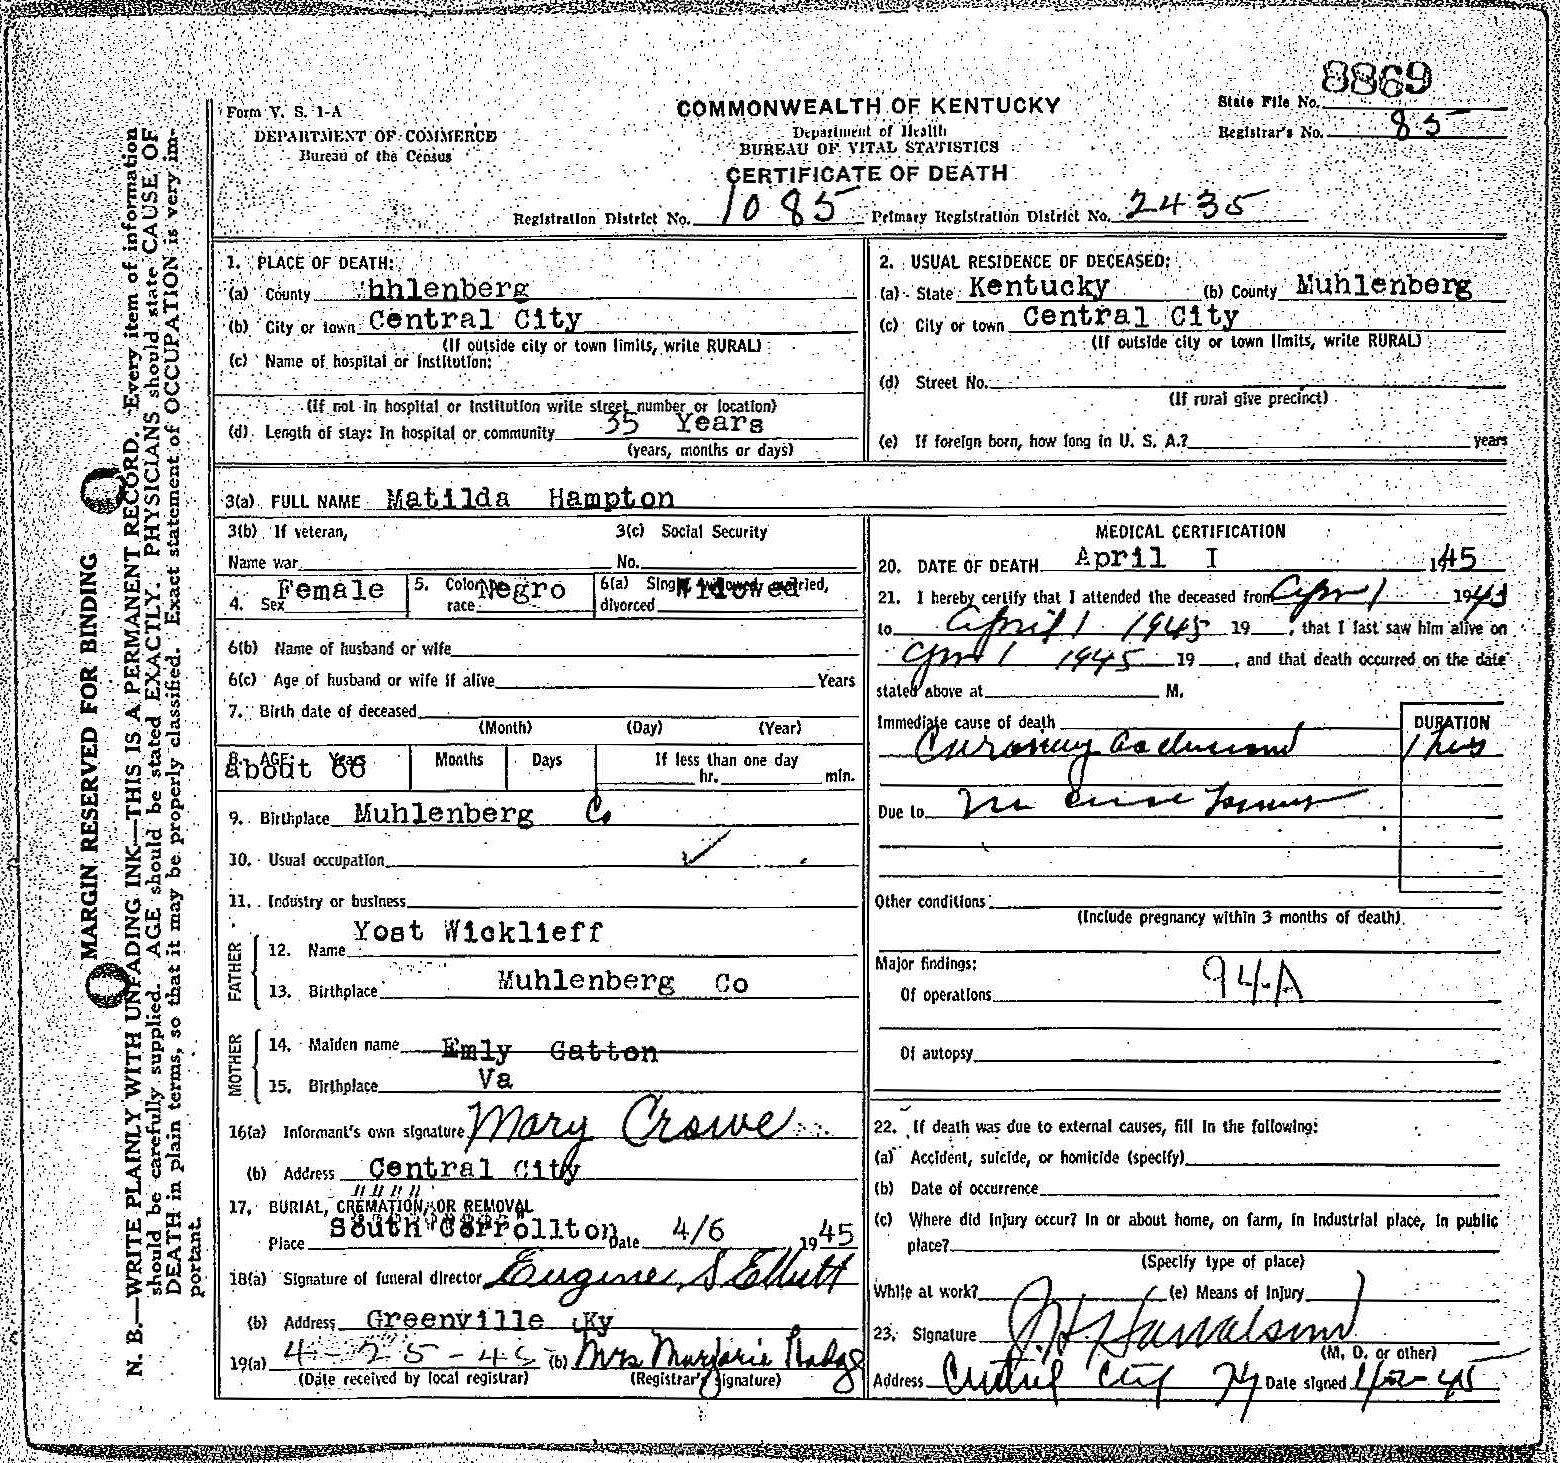 8869
Form V. S. 1-A
COMMONWEALTH OF KENTUCKY
State File No.
DEPARTMENT OF COMMERCE
Department of Health
Registrar's No. 85
Bureau of the Census
BUREAU OF VITAL STATISTICS
CERTIFICATE OF DEATH
Registration District No. 1085 Primary Registration District No. 2435
MARGIN RESERVED FOR BINDING
N. B.—WRITE PLAINLY WITH UNFADING INK—THIS IS A PERMANENT RECORD. Every item of information
should be carefully supplied. AGE should be stated EXACTLY. PHYSICIANS should state CAUSE OF
DEATH in plain terms, so that it may be properly classified. Exact statement of OCCUPATION is very im-
portant.
1. PLACE OF DEATH:
(a) County hhlenberg
(b) City or town Central City
(If outside city or town limits, write RURAL)
(c) Name of hospital or institution:
(If not in hospital or institution write street number or location)
(d) Length of stay: In hospital or community 35 Years
(years, months or days)
2. USUAL RESIDENCE OF DECEASED:
(a) State Kentucky (b) County Muhlenberg
(c) City or town Central City
(If outside city or town limits, write RURAL)
(d) Street No.
(If rural give precinct)
(e) If foreign born, how long in U. S. A.? years
3(a) FULL NAME Matilda Hampton
3(b) If veteran, 3(c) Social Security
Name war No.
4. Sex Female 5. Color or race Negro 6(a) Single, widowed, married, divorced Widowed
6(b) Name of husband or wife
6(c) Age of husband or wife if alive Years
7. Birth date of deceased
(Month) (Day) (Year)
8. AGE: Years Months Days If less than one day
about 66 hr. min.
9. Birthplace Muhlenberg Co
10. Usual occupation ✓
11. Industry or business
FATHER
12. Name Yost Wicklieff
13. Birthplace Muhlenberg Co
MOTHER
14. Maiden name Emly Gatton
15. Birthplace Va
16(a) Informant's own signature Mary Crowe
(b) Address Central City
17. BURIAL, CREMATION, OR REMOVAL
Place South Corrollton Date 4/6 1945
18(a) Signature of funeral director Eugene S Elliott
(b) Address Greenville Ky
19(a) 4-25-45 (b) Mrs Marjorie
(Date received by local registrar) (Registrar's signature)
MEDICAL CERTIFICATION
20. DATE OF DEATH April I 1945
21. I hereby certify that I attended the deceased from Apr 1 1945
to April 1 1945 19 , that I last saw him alive on
Apr 1 1945 19 , and that death occurred on the date
stated above at M.
Immediate cause of death DURATION
1 hrs
Due to
Other conditions
(Include pregnancy within 3 months of death)
Major findings:
Of operations 94-A
Of autopsy
22. If death was due to external causes, fill in the following:
(a) Accident, suicide, or homicide (specify)
(b) Date of occurrence
(c) Where did injury occur? In or about home, on farm, in industrial place, in public
place?
(Specify type of place)
While at work? (e) Means of Injury
23. Signature
(M. D. or other)
Address Central City Ky Date signed